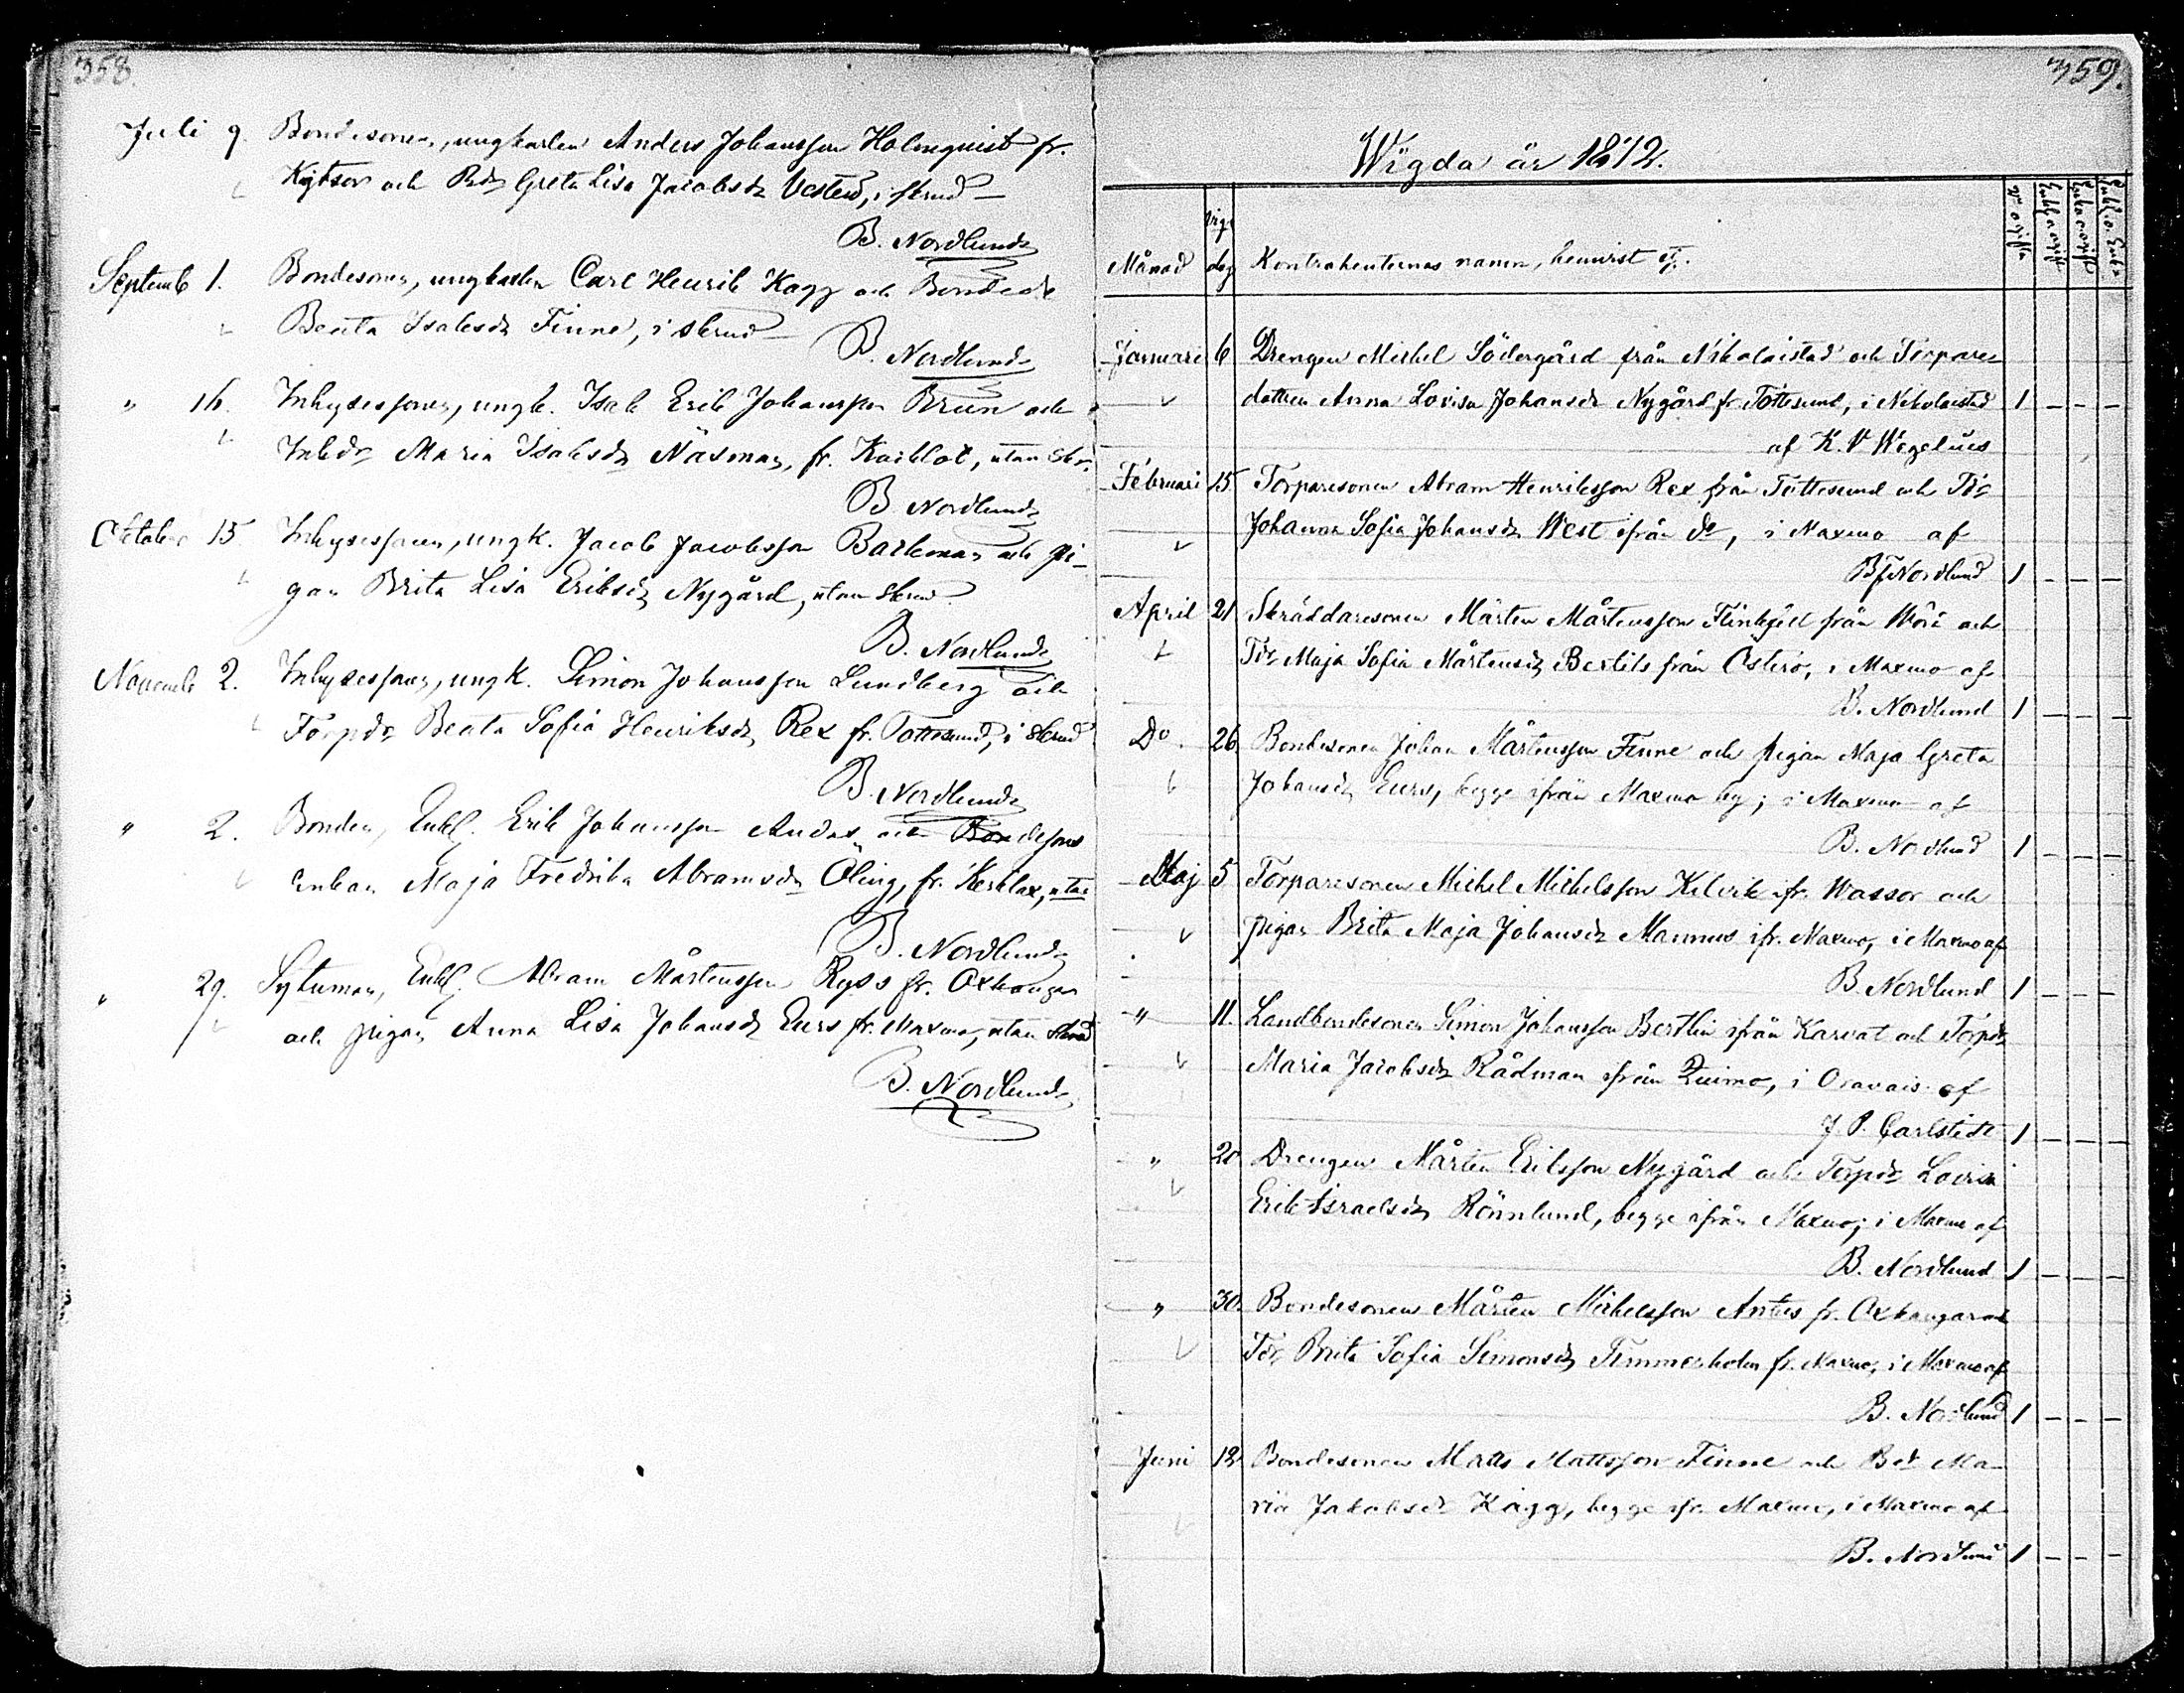 358.
Juli 9. Bondesonen, ungkarlen Anders Johansson Holmquist fr.
Kÿtsor och Bdr Greta Lisa Jacobsdr Vesterö, i skrud
B. Nordlund
Septemb 1. Bondesonen, ungkarlen Carl Henrik Kagg och Bondedr
Beata Isaksdr Finne, i skrud
B. Nordlund
" 16. Inhysessonen, ungk. Isak Erik Johansson Brun och
Inhdr Maria Isaksdr Näsman, fr. Kaiklot, utan skr.
B Nordlund
Oktober 15. Inhysessonen, ungk. Jacob Jacobsson Backman och pi-
gan Brita Lisa Eriksdr Nygård, utan skrud
B. Nordlund
Novemb 2. Inhysessonen, ungk. Simon Johansson Lundberg och
Torpdr Beata Sofia Henriksdr Rex fr. Tottesund, i skrud
B. Nordlund
" 2. Bonden, Enkl. Erik Johansson Andas och Bondesons
enkan Maja Fredrika Abramsdr Öling, fr. Kerklax, utan
B. Nordlund
" 29. Sytuman, Enkl. Abram Mårtensson Ryss fr. Oxkangar
och pigan Anna Lisa Johansdr Eurs fr. Maxmo, utan skrud
B. Nordlund
359.
Wigda år 1872.
Månad vigs dag Kontrahenternas namn, hemvist etc.
Januari 6 Drengen Michel Södergård från Nikolaistad och Torpare-
dottren Anna Lovisa Johansdr Nygård fr. Töttesund, i Nikolaistad 1 – – –
af K. V Wegelius
Februari 15 Torparesonen Abram Henriksson Rex från Tottesund och Tdr
Johanna Sofia Johansdr West ifrån do, i Maxmo af
B Nordlund 1 – – –
April 21 Skräddaresonen Mårten Mårtensson Flinkfelt från Wörå och
Tdr Maja Sofia Mårtensdr Bertils från Österö, i Maxmo af
B. Nordlund 1 – – –
Do. 26 Bondesonen Johan Mårtensson Finne och pigan Maja Greta
Johansdr Eurs, begge ifrån Maxmo by; i Maxmo af
B. Nordlund 1 – – –
Maj 5 Torparesonen Michel Michelsson Kilvik ifr. Wassor och
pigan Brita Maja Johansdr Mannus ifr. Maxmo, i Maxmo af
B. Nordlund 1 – – –
" 11. Landbondesonen Simon Johansson Bertlin ifrån Karvat och Torpdr
Maria Jacobsdr Rådman ifrån Quimo, i Oravais af
J. P. Carlstedt 1 – – –
" 20 Drengen Mårten Eriksson Nygård och Torpdr Lovisa
Erik-Israelsdr Rönnlund, begge ifrån Maxmo; i Maxmo af
B. Nordlund 1 – – –
" 30. Bondesonen Mårten Michelsson Antus fr. Oxkangar och
Tdr Brita Sofia Simonsdr Timmerholm fr. Maxmo, i Maxmo af
B. Nordlund 1 – – –
Juni 12 Bondesonen Matts Mattsson Finne och Bdr Ma-
ria Jakobsdr Kagg, begge ifr. Maxmo, i Maxmo af
B. Nordlund 1 – – –